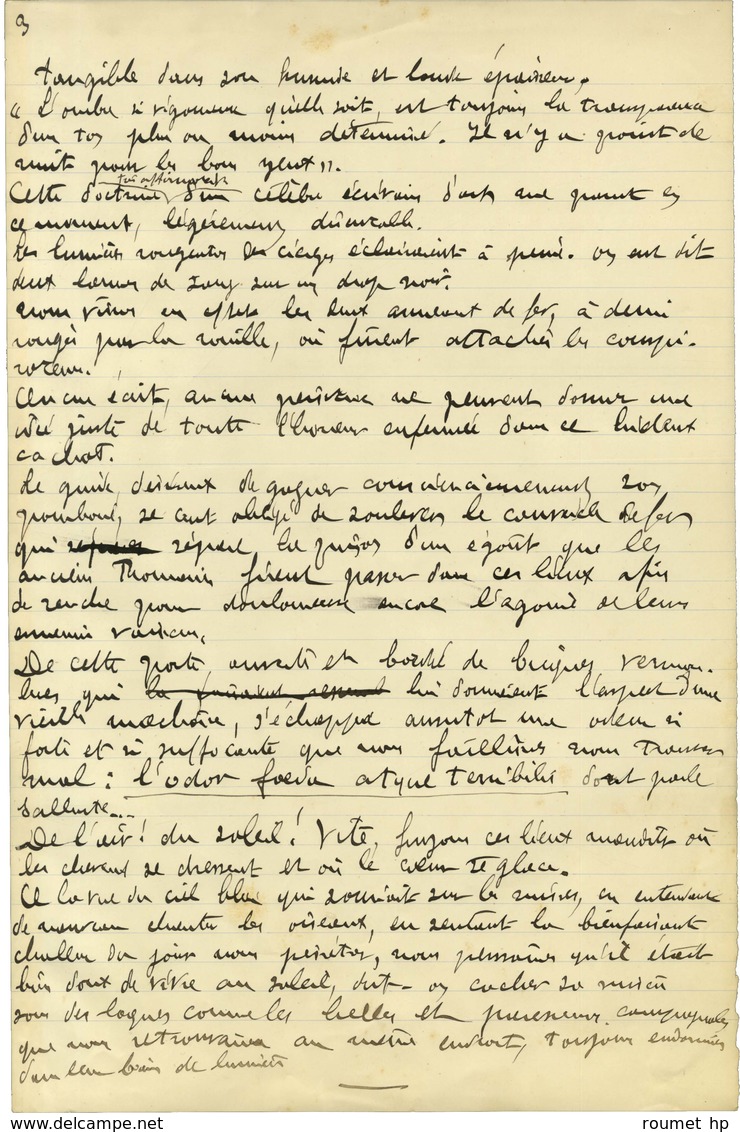 3
tangible dans son humide et lourde épaisseur.
« L'ombre si vigoureuse qu'elle soit, est toujours la transparence
d'un ton plus ou moins déterminé. Il n'y a point de
nuit pour les bons yeux ».
Cette doctrine d'un célèbre écrivain d'art me parut en
ce moment, légèrement
Les lumières rougeâtres des cierges éclairaient à peine. On eut dit
deux larmes de sang sur un drap noir.
Nous vîmes en effet les deux anneaux de fer, à demi
rongés par la rouille, où furent attachés les conspi-
rateurs.
Aucun écrit, aucune peinture ne peuvent donner une
idée juste de toute l'horreur enfermée dans ce hideux
cachot.
Le guide, désireux de gagner consciencieusement son
pourboire, se crut obligé de soulever le couvercle de fer
qui sépare la prison d'un égoût que les
anciens Romains firent passer dans ces lieux afin
de rendre plus douloureuse encore l'agonie de leurs
ennemis vaincus.
De cette porte, ouverte et bordée de briques vermou-
lues qui lui donnaient l'aspect d'une
vieille mâchoire, s'échappa aussitôt une odeur si
forte et si suffocante que nous faillîmes nous trouver
mal : l'odor foeda atque terribilis dont parle
Salluste...
De l'air ! du soleil ! Vite, fuyons ces lieux maudits où
les cheveux se dressent et où le cœur se glace.
A la vue du ciel bleu qui souriait sur les ruines, en entendant
de nouveau chanter les oiseaux, en sentant la bienfaisante
chaleur du jour nous pénétrer, nous pensâmes qu'il était
bien doux de vivre au soleil, dut-on cacher sa misère
sous des loques comme les belles et paresseuses campagnoles
que nous retrouvâmes au même endroit, toujours endormies
dans leur bain de lumière
roumet hp